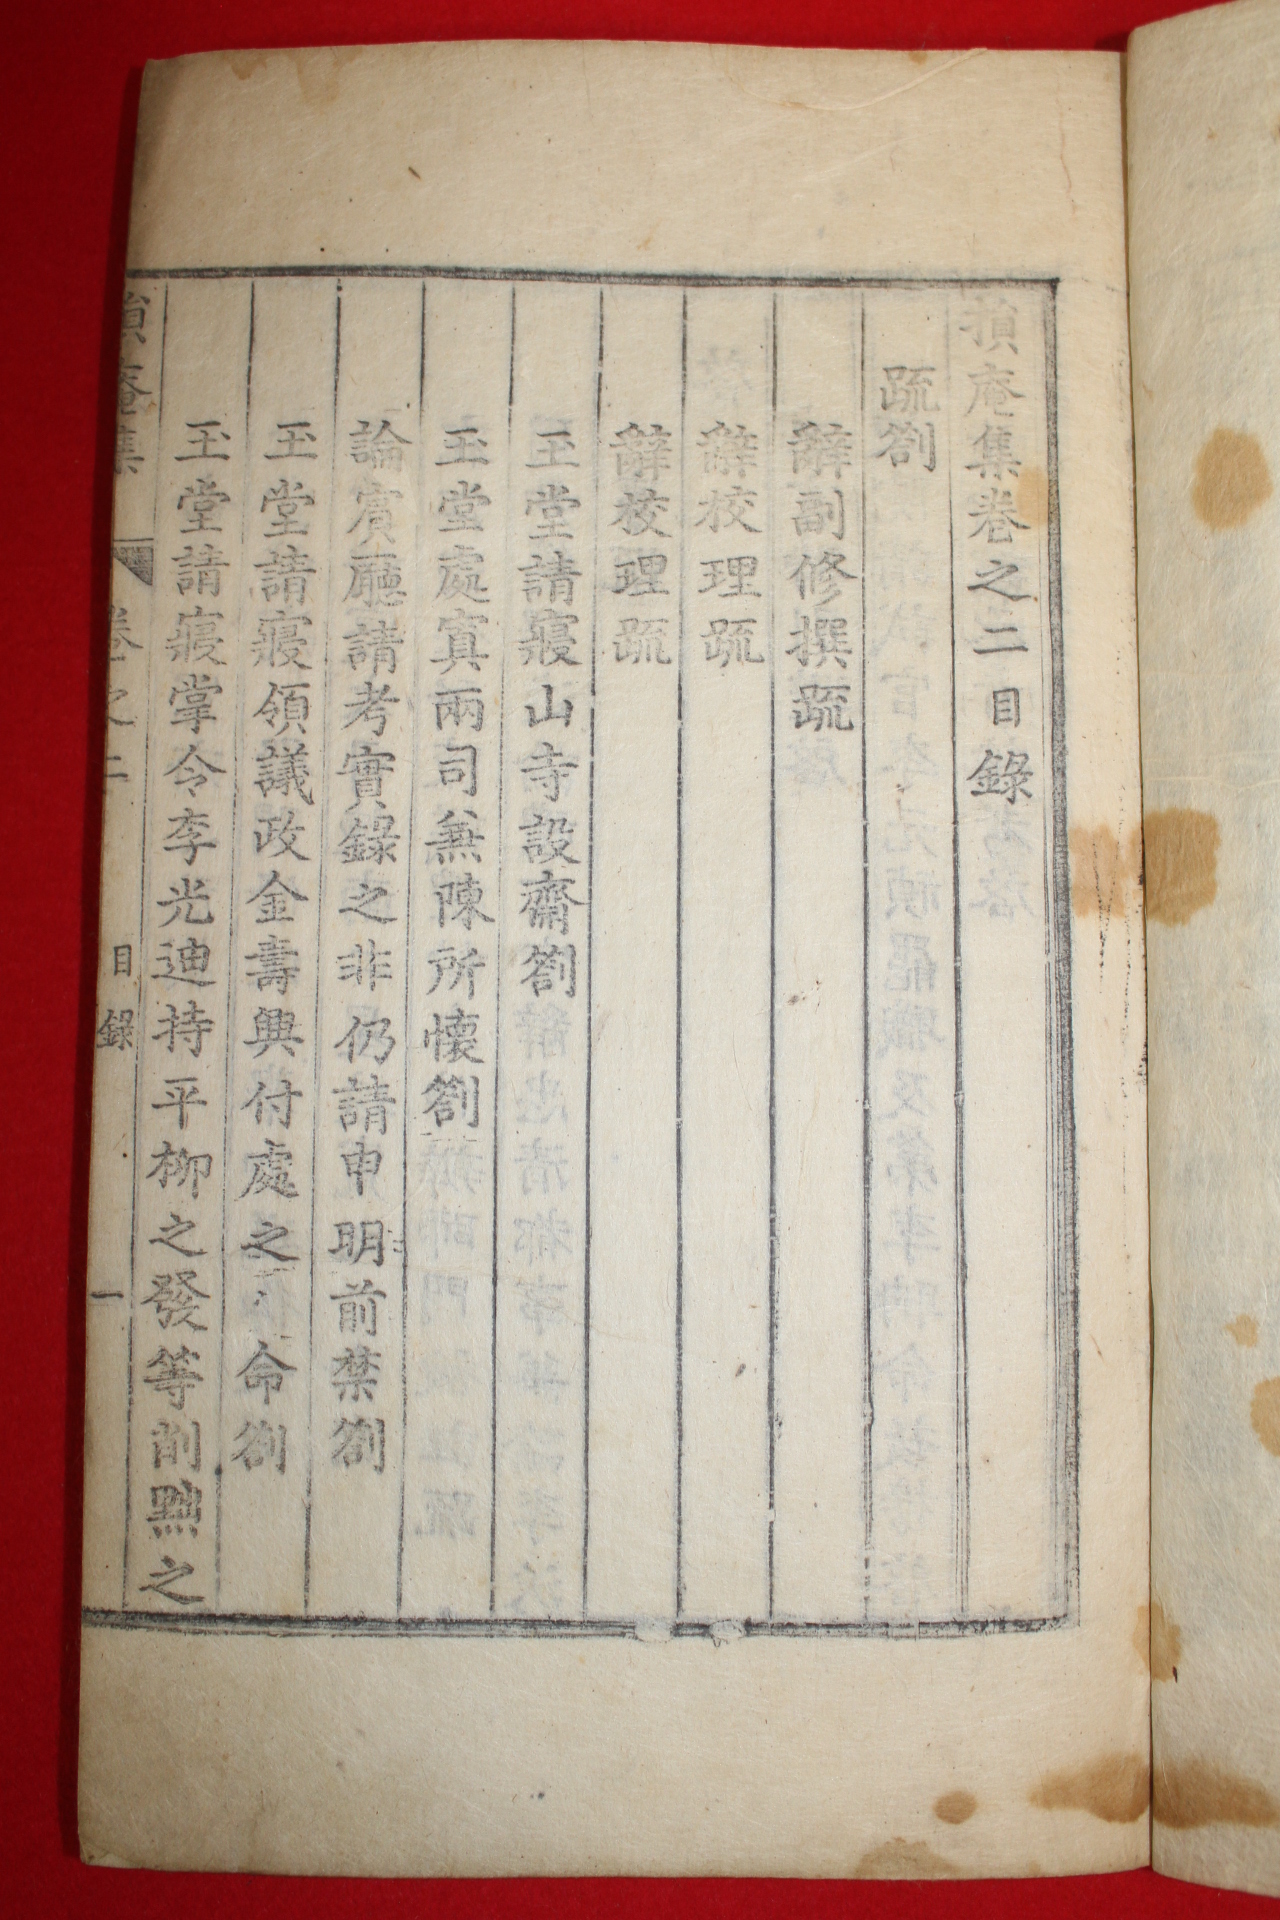 損庵集卷之二目錄
疏劄
辭副修撰疏
辭校理疏
辭校理疏
玉堂請寢山寺設齋劄
玉堂處寘兩司兼陳所懷劄
論賓廳請考實錄之非仍請申明前禁劄
玉堂請寢領議政金壽興付處之命劄
玉堂請寢掌令李光迪持平柳之發等削黜之
損庵集 卷之二 目錄 一